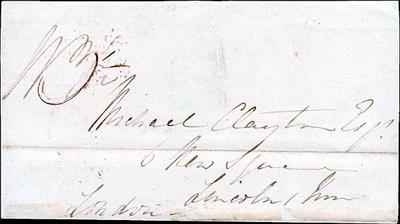 Michael Clayton Esqr
6 New Square
Lincolns Inn
London